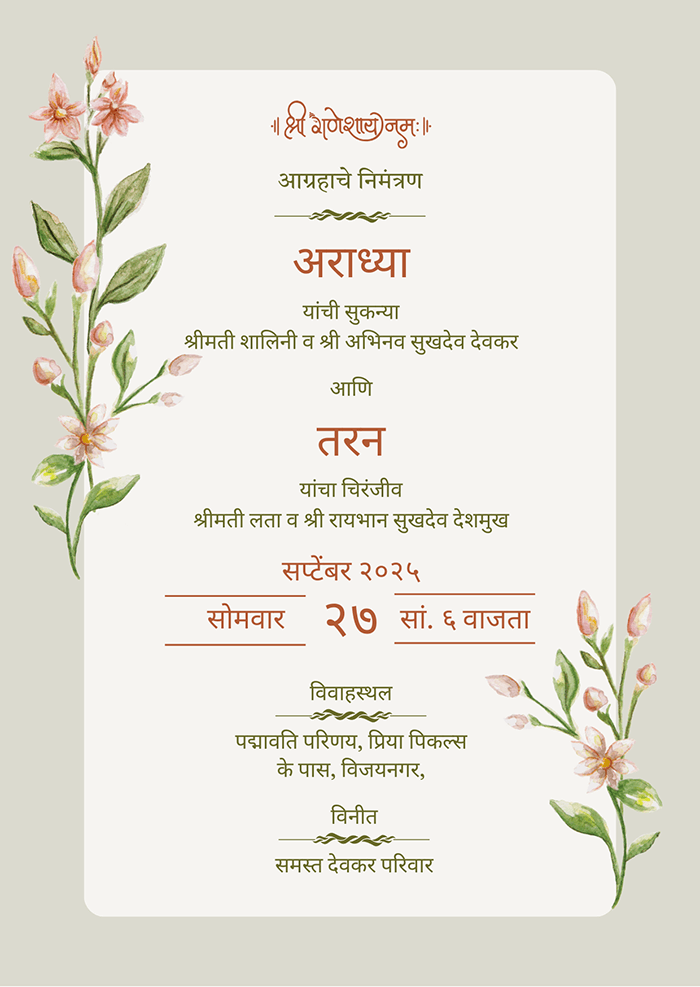 ॥ श्री गणेशाय नमः ॥
आग्रहाचे निमंत्रण
अराध्या
यांची सुकन्या
श्रीमती शालिनी व श्री अभिनव सुखदेव देवकर
आणि
तरन
यांचा चिरंजीव
श्रीमती लता व श्री रायभान सुखदेव देशमुख
सप्टेंबर २०२५
सोमवार २७ सां. ६ वाजता
विवाहस्थल
पद्मावति परिणय, प्रिया पिकल्स
के पास, विजयनगर,
विनीत
समस्त देवकर परिवार